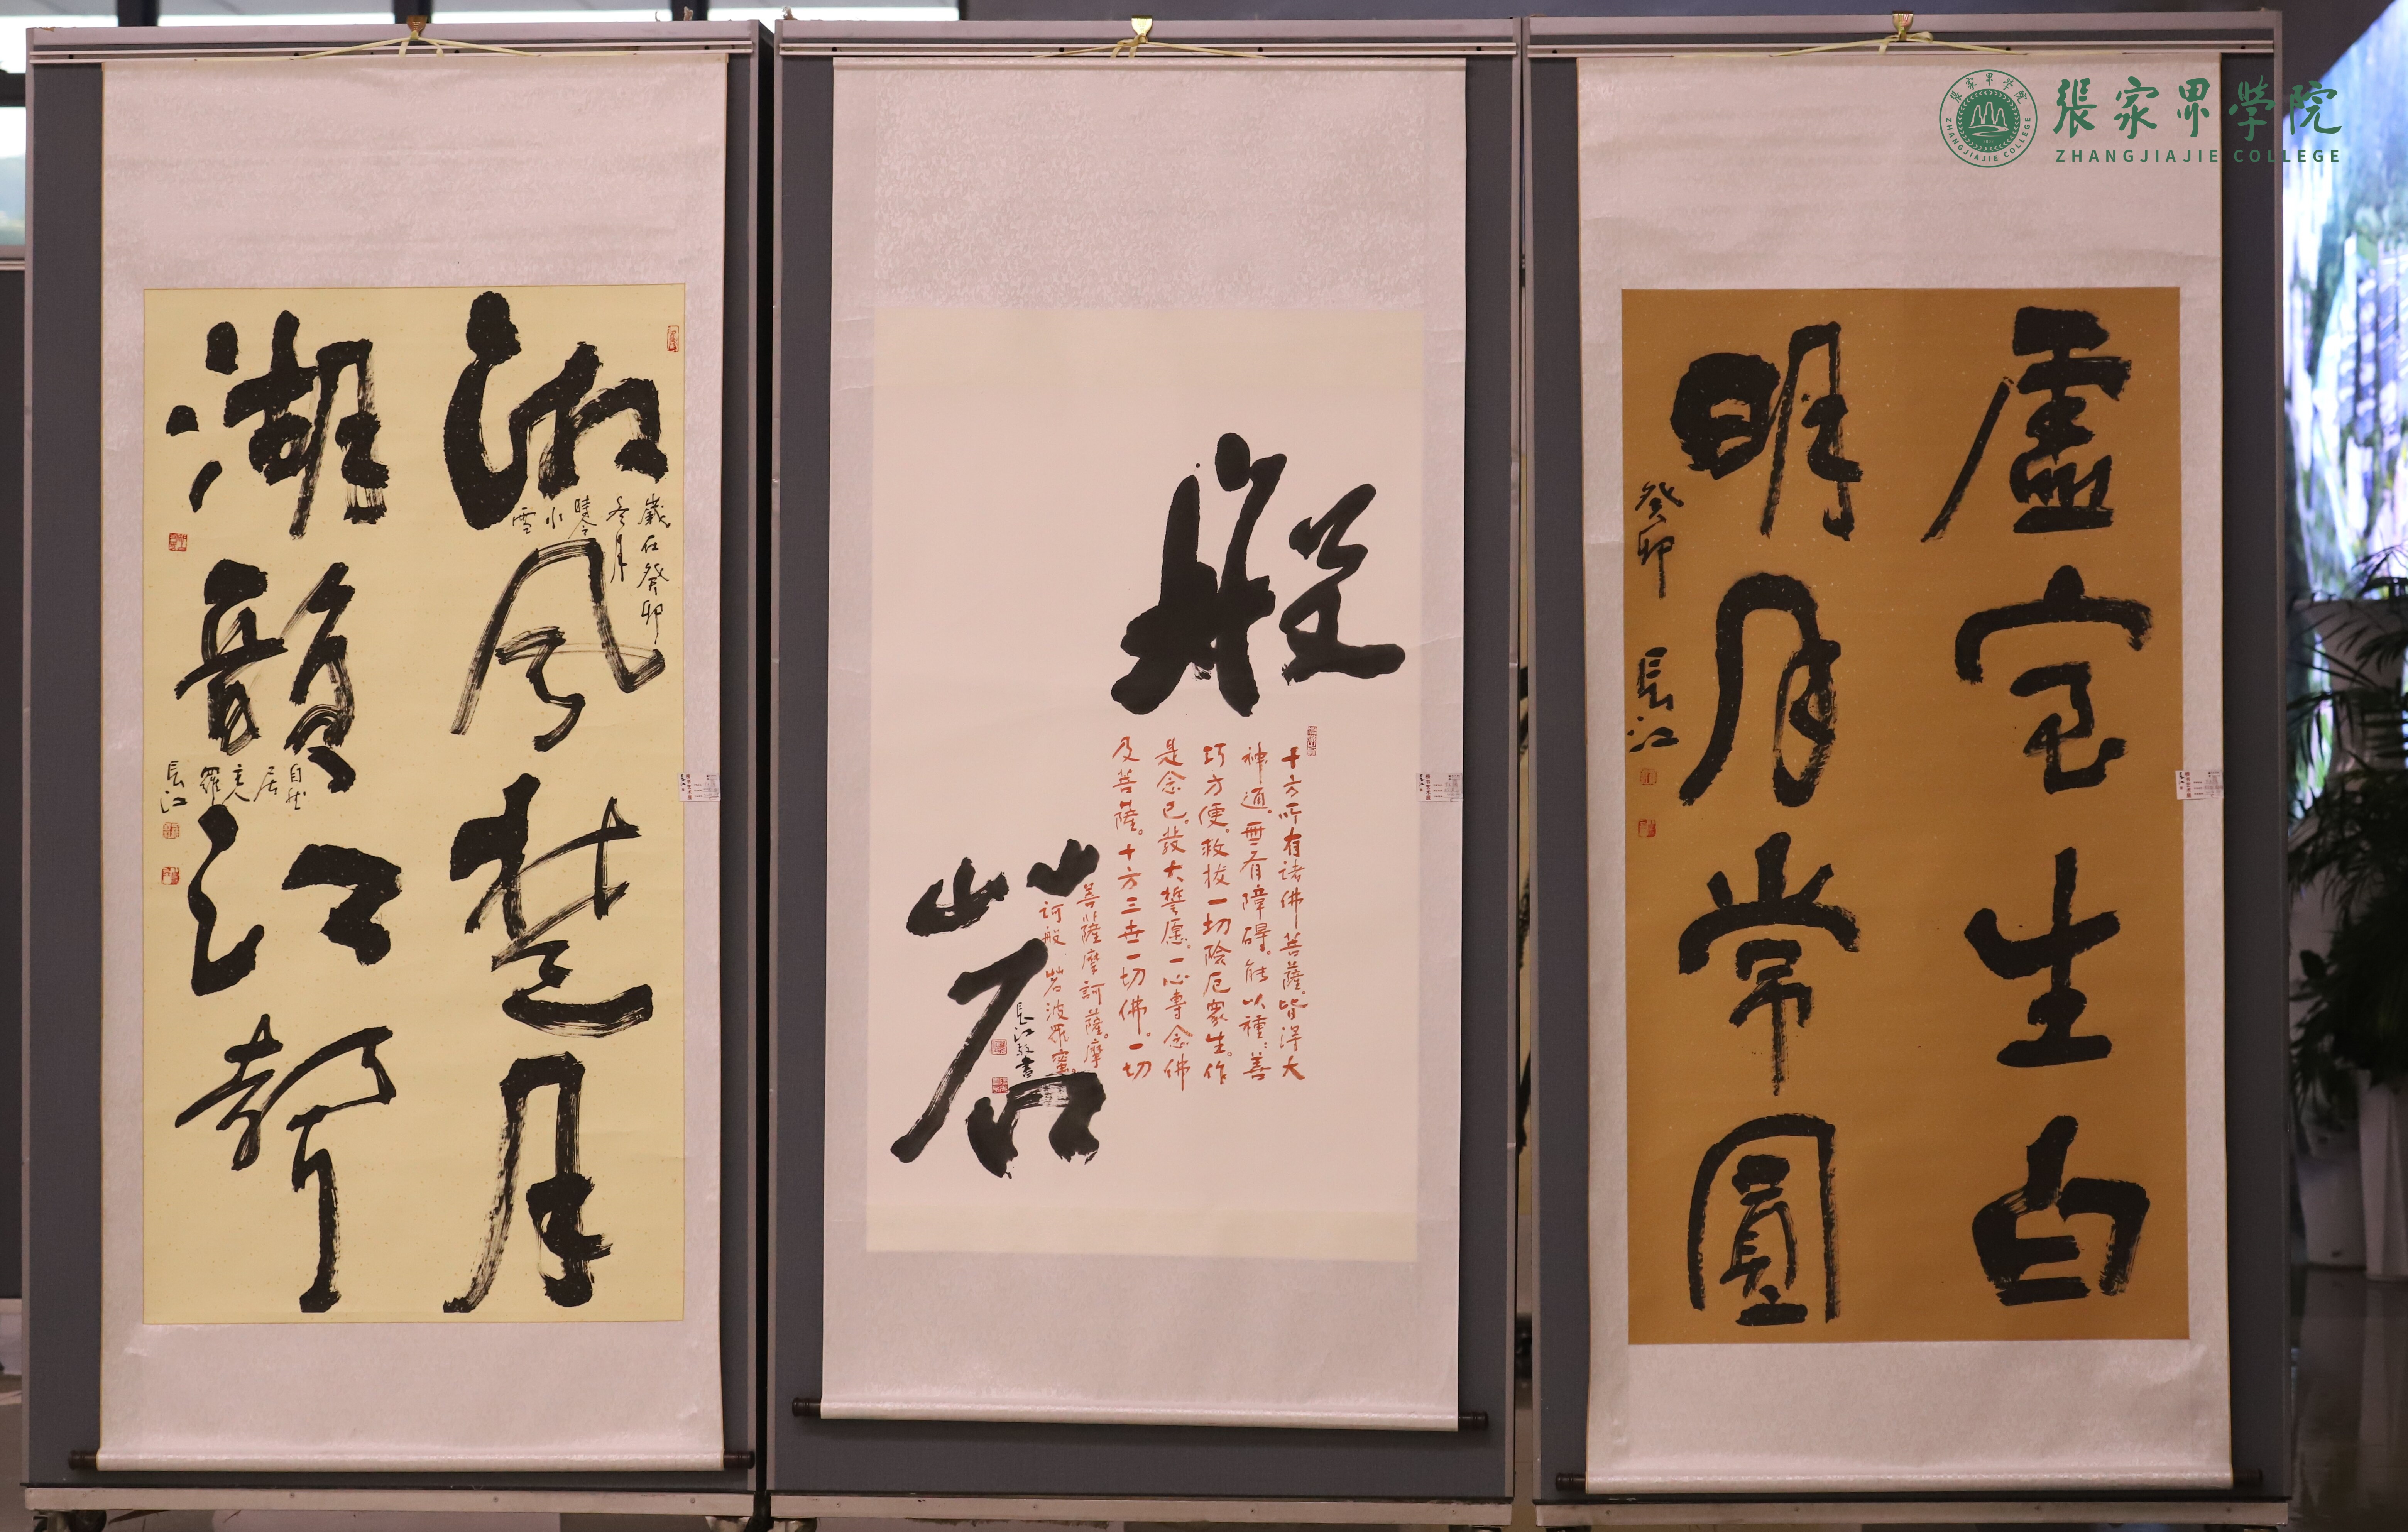 張家界學院
ZHANGJIAJIE COLLEGE
湘風楚月
歲在癸卯
冬月
時令
小
雪
湖韻江聲
自然
居
主人
羅
長江
般若
十方所有諸佛菩薩。皆得大
神通。無有障碍。能以種種善
巧方便。救拔一切險厄眾生。作
是念已。發大誓愿。一心專念佛
及菩薩。十方三世一切佛。一切
菩薩摩訶薩。摩
訶般若波羅蜜。
長江敬書
虛室生白
明月常圓
癸卯 長江